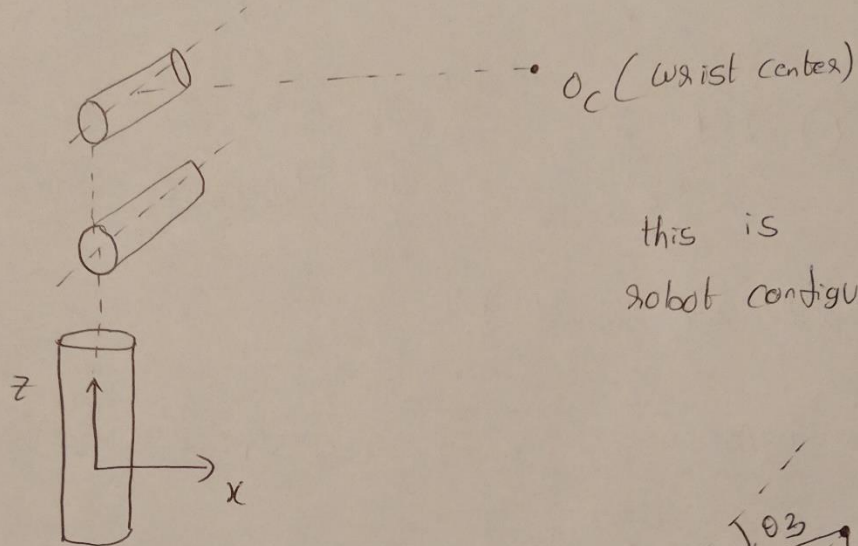 Oc (wrist center)
this is
robot configu
z
x
θ3